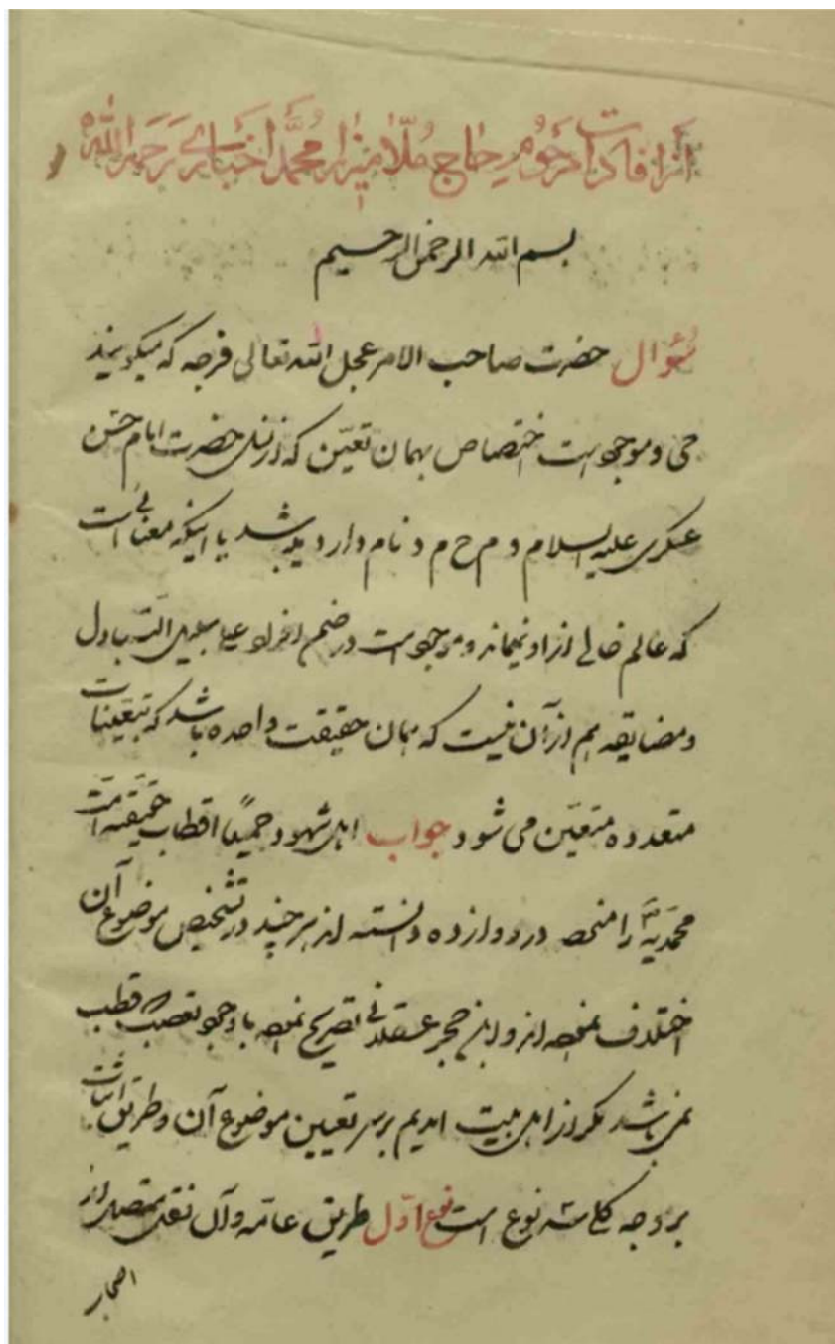 از افادات مرحوم حاج ملا میرزا محمد اخباری رحمه الله
بسم الله الرحمن الرحیم
سؤال حضرت صاحب الامر عجل الله تعالی فرجه که میکویند
حی و موجود است اختصاص بهمان تعیّن که از نسل حضرت امام حسن
عسکری علیه السلام و م ح م د نام دارد میباشد یا اینکه معنائی است
که عالم خالی از او نیماند و موجود است در ضمن افراد علی سبیل التبادل
و مضایقه هم از آن نیست که همان حقیقت واحده باشد که بتعیّنات
متعدده متعیّن می شود جواب اهل شهود جمیعًا اقطاب حقیقیه امّت
محمدیه ص را منحصر در دوازده دانسته اند هر چند در تشخیص موضوع آن
اختلاف نموده اند و ابن حجر عسقلانی تصریح نموده با وجود تعصب که قطب
نمی باشد مگر از اهل بیت امدیم بر سر تعیین موضوع آن و طریق اثبات
بر وجه کلی سه نوع است نوع اوّل طریق عامّه و آن نقل متصل از
اصحاب